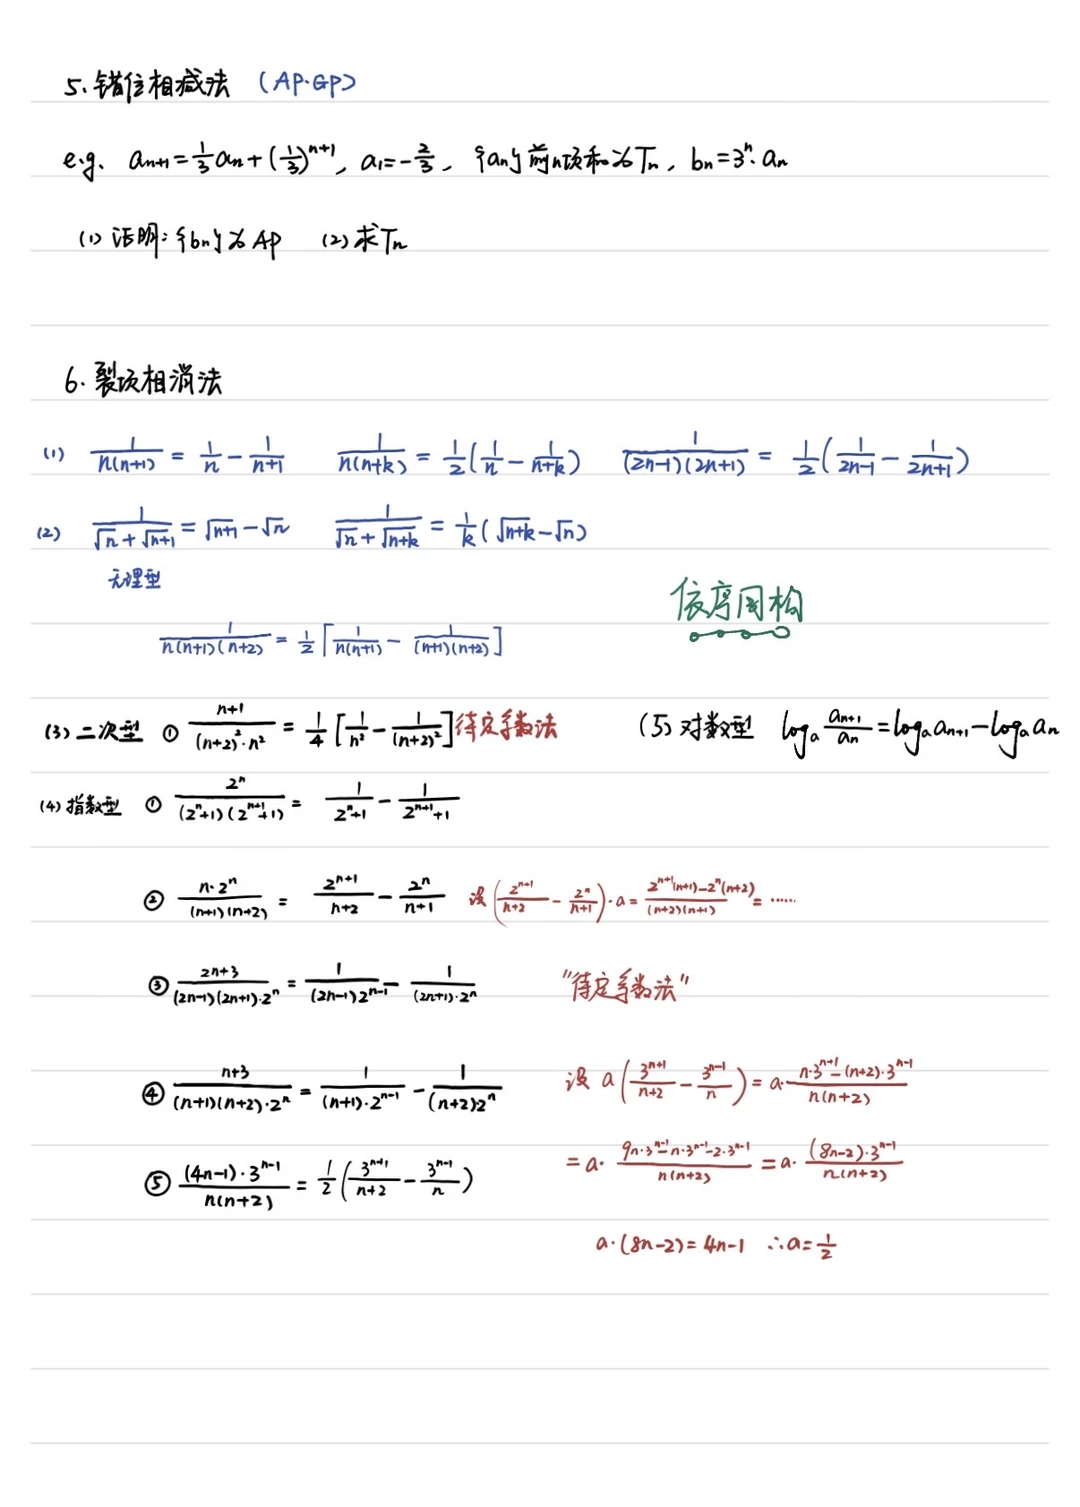 5. 错位相减法 (AP·GP)
e.g. aₙ₊₁ = 1/3 aₙ + (1/3)ⁿ⁺¹, a₁ = -2/3, {aₙ}前n项和为Tₙ, bₙ = 3ⁿ·aₙ
(1) 证明: {bₙ}为AP (2) 求Tₙ
6. 裂项相消法
(1) 1/(n(n+1)) = 1/n - 1/(n+1)  1/(n(n+k)) = 1/2(1/n - 1/(n+k))  1/((2n-1)(2n+1)) = 1/2(1/(2n-1) - 1/(2n+1))
(2) 1/(√n + √(n+1)) = √(n+1) - √n  1/(√n + √(n+k)) = 1/k(√(n+k) - √n)
无理型
依序同构
1/(n(n+1)(n+2)) = 1/2[1/(n(n+1)) - 1/((n+1)(n+2))]
(3) 二次型 ① (n+1)/((n+2)²·n²) = 1/4[1/n² - 1/(n+2)²] 待定系数法 (5) 对数型 logₐ(aₙ₊₁/aₙ) = logₐaₙ₊₁ - logₐaₙ
(4) 指数型 ① 2ⁿ/((2ⁿ+1)(2ⁿ⁺¹+1)) = 1/(2ⁿ+1) - 1/(2ⁿ⁺¹+1)
② n·2ⁿ/((n+1)(n+2)) = 2ⁿ⁺¹/(n+2) - 2ⁿ/(n+1) 设(2ⁿ⁺¹/(n+2) - 2ⁿ/(n+1))·a = (2ⁿ⁺¹(n+1)-2ⁿ(n+2))/((n+2)(n+1)) = ······
③ (2n+3)/((2n-1)(2n+1)·2ⁿ) = 1/((2n-1)2ⁿ⁻¹) - 1/((2n+1)·2ⁿ) "待定系数法"
④ (n+3)/((n+1)(n+2)·2ⁿ) = 1/((n+1)·2ⁿ⁻¹) - 1/((n+2)2ⁿ) 设 a(3ⁿ⁺¹/(n+2) - 3ⁿ⁻¹/n) = a·(n·3ⁿ⁺¹-(n+2)·3ⁿ⁻¹)/(n(n+2))
⑤ (4n-1)·3ⁿ⁻¹/(n(n+2)) = 1/2(3ⁿ⁺¹/(n+2) - 3ⁿ⁻¹/n) = a·(9n·3ⁿ⁻¹-n·3ⁿ⁻¹-2·3ⁿ⁻¹)/(n(n+2)) = a·((8n-2)·3ⁿ⁻¹)/(n(n+2))
a·(8n-2) = 4n-1 ∴a = 1/2